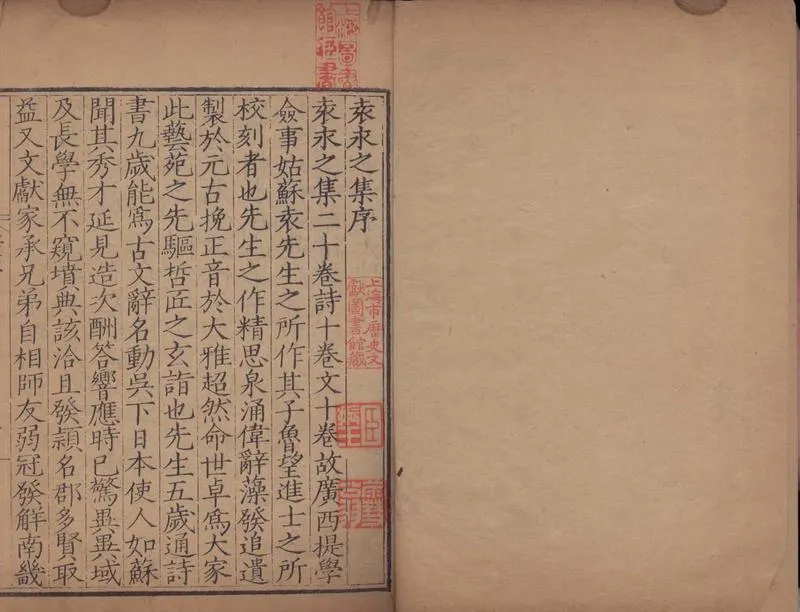 袁永之集序
袁永之集二十卷詩十卷文十卷故廣西提學
僉事姑蘇袁先生之所作其子魯望進士之所
校刻者也先生之作精思泉涌偉辭藻發追遺
製於元古挽正音於大雅超然命世卓爲大家
此藝苑之先驅哲匠之玄詣也先生五歲通詩
書九歲能爲古文辭名動吳下日本使人如蘇
聞其秀才延見造次酬答響應時已驚異異域
及長學無不窺墳典該洽且發穎名郡多賢取
益又文獻家承兄弟自相師友弱冠發解南畿
上海圖書
館藏書
上海市歷史文
獻圖書館藏